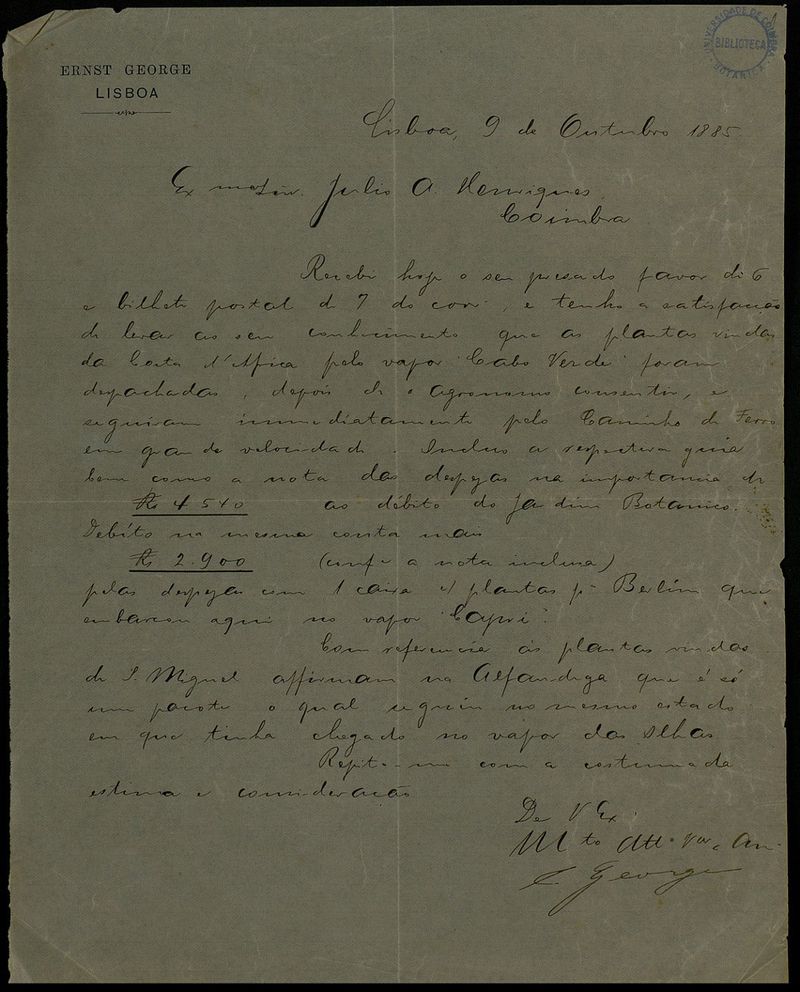 ERNST GEORGE
LISBOA
UNIVERSIDADE DE COIMBRA
BIBLIOTECA
BOTANICA
Lisboa, 9 de Outubro 1885
Ex mo Snr. Julio A. Henriques
Coimbra
Recebi hoje o seu presado favor di 6
e bilhete postal d 7 do corr , e tenho a satisfacção
de levar ao seu conhecimento que as plantas vindas
da Costa d'Africa pelo vapor "Cabo Verde" foram
despachadas, depois de o agronomo consentir, e
seguiram immediatamente pelo Caminho de Ferro
em grande velocidade. Incluo a respectiva guia
bem como a nota das despezas na importancia de
Rs 4.540 ao débito do Jardim Botanico.
Debito na mesma conta mais
Rs 2.900 (conf e a nota inclusa)
pelas despezas com 1 caixa c/ plantas pa Berlim que
embarcou aqui no vapor "Capri".
Com referencia ás plantas vindas
de S. Miguel affirmam na Alfandega que é só
um pacote o qual seguiu no mesmo estado
em que tinha chegado no vapor das Ilhas
Repito-me com a costumada
estima e consideração
De V Ex
M to Att o Vor e
E. George